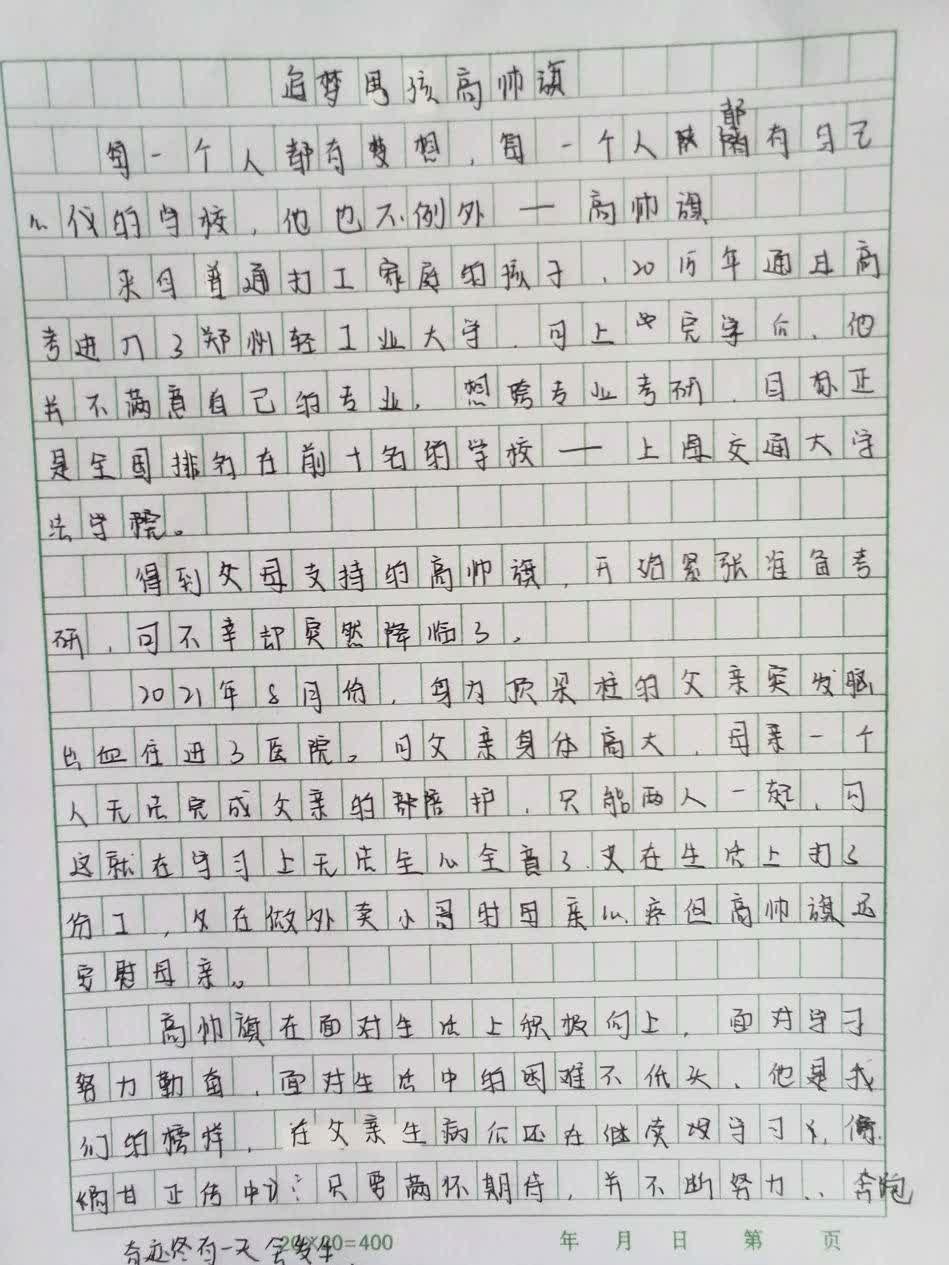 追梦男孩高帅旗
每一个人都有梦想，每一个人都有自己
心仪的学校，他也不例外——高帅旗
来自普通打工家庭的孩子，20 年通过高
考进入了郑州轻工业大学，可上完学后，他
并不满意自己的专业，想跨专业考研，目标正
是全国排名在前十名的学校——上海交通大学
法学院。
得到父母支持的高帅旗，开始紧张准备考
研，可不幸却突然降临了。
2021年8月份，身为顶梁柱的父亲突发脑
出血住进了医院。可父亲身体高大，母亲一个
人无法完成父亲的陪护，只能两人一起，可
这就在学习上无法全心全意了.又在生活上打了
份工，又在做外卖小哥时母亲心疼但高帅旗还
安慰母亲。
高帅旗在面对生活上积极向上，面对学习
努力勤奋，面对生活中的困难不低头，他是我
们的榜样，在父亲生病后还在继续学习，像
《阿甘正传中》：只要满怀期待，并不断努力，奔跑
奇迹终有一天会发生.
20×20=400 年 月 日 第 页